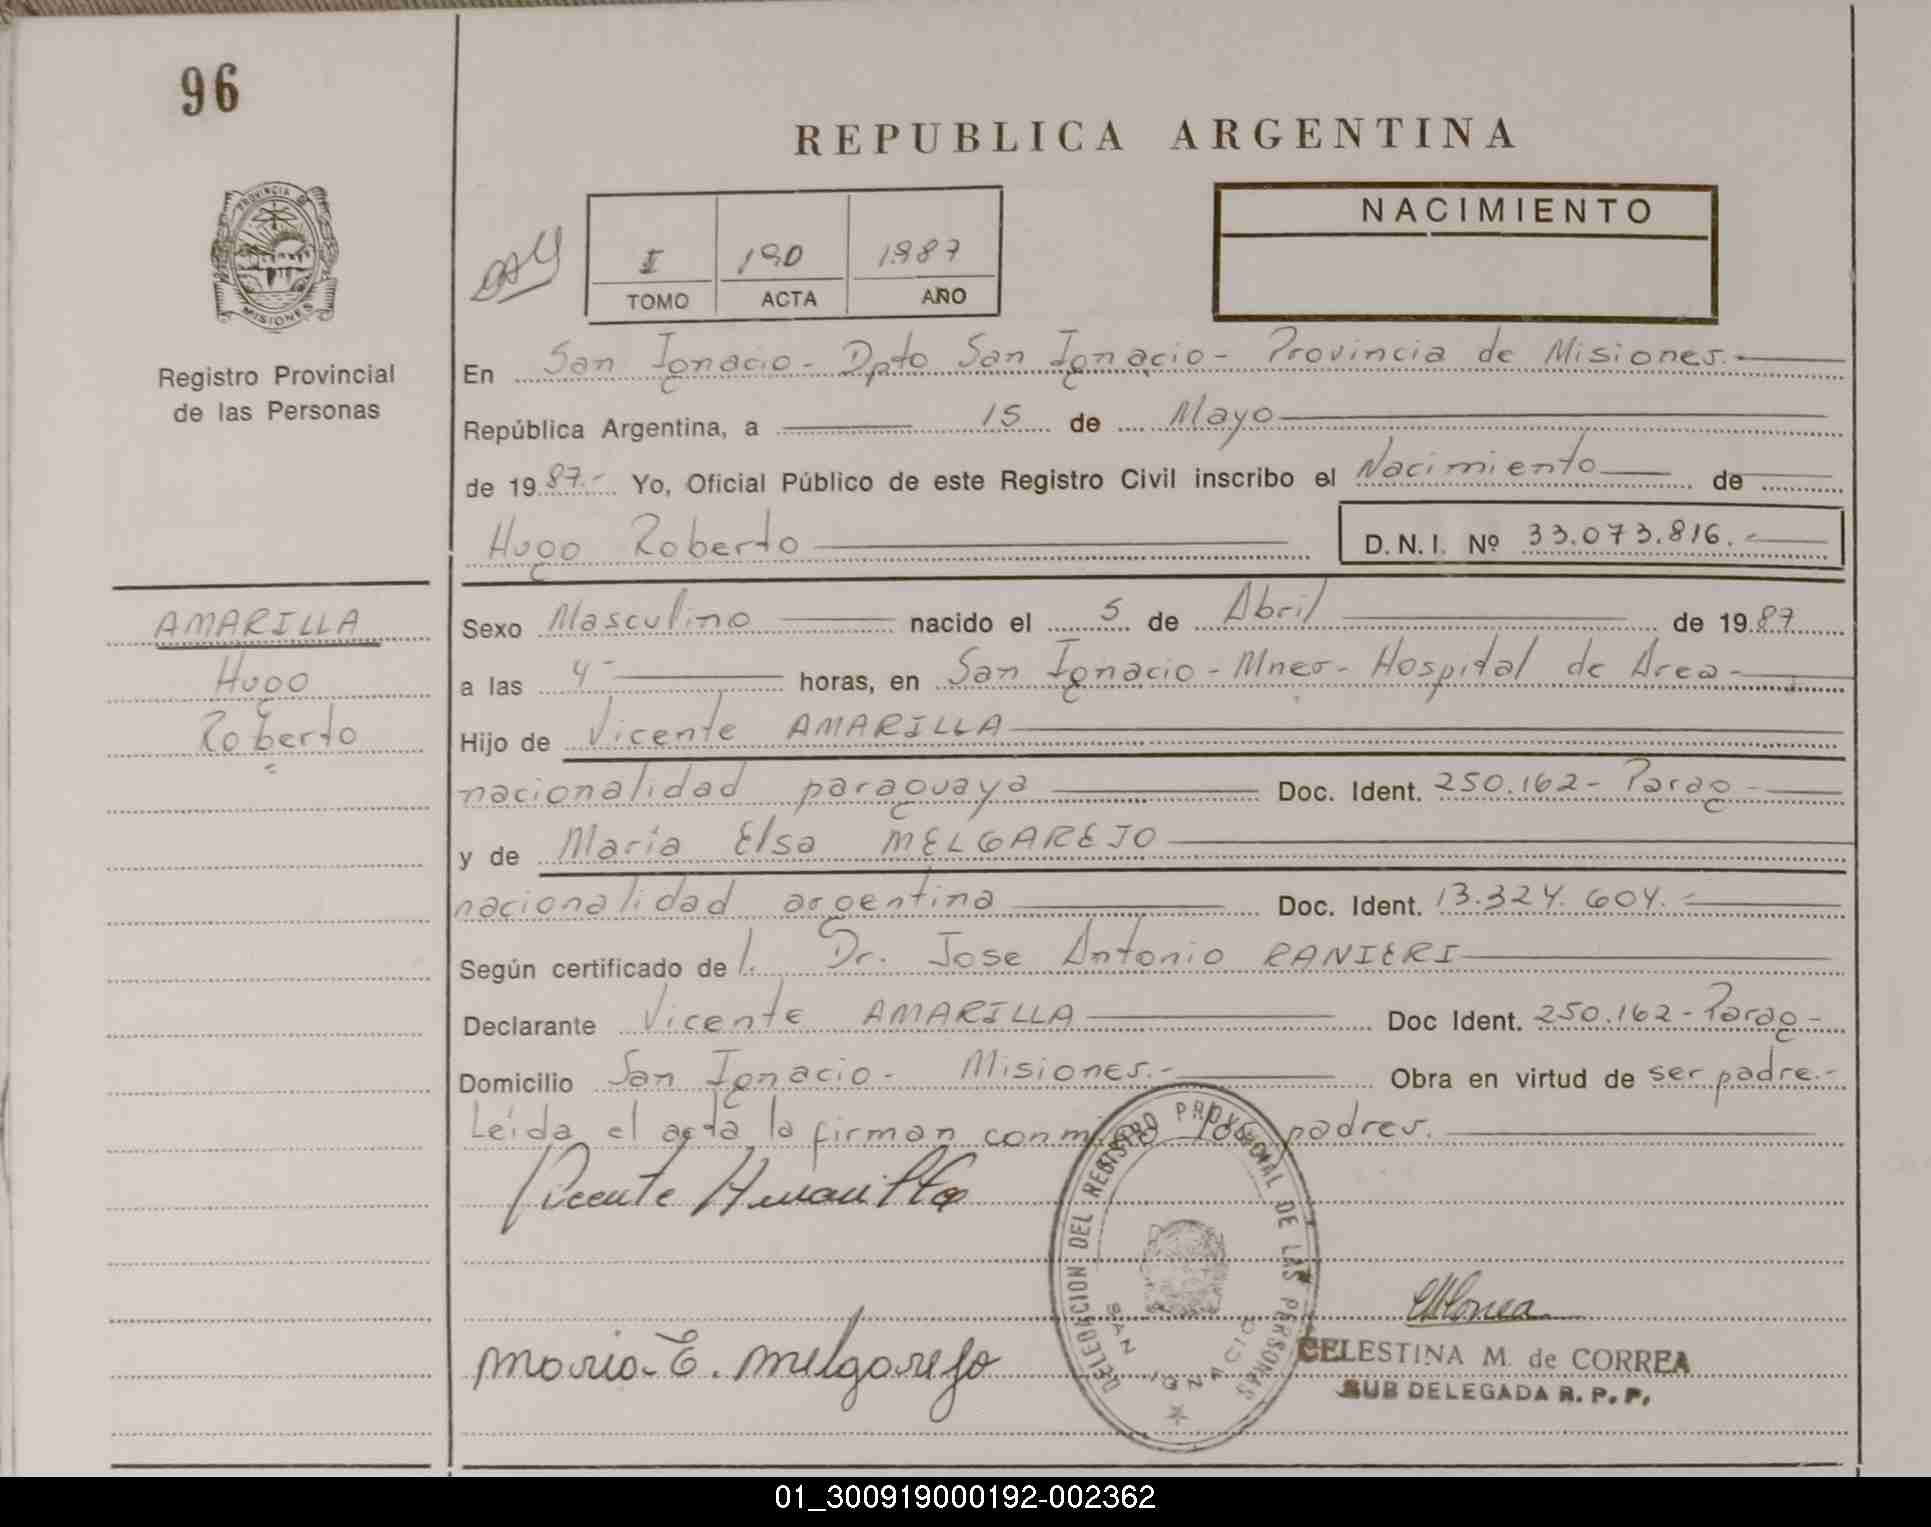 96
REPUBLICA ARGENTINA
PROVINCIA DE
MISIONES
Registro Provincial
de las Personas
I 190 1987
TOMO ACTA AÑO
NACIMIENTO
En San Ignacio - Dpto San Ignacio - Provincia de Misiones.-
República Argentina, a 15 de Mayo
de 1987.- Yo, Oficial Público de este Registro Civil inscribo el Nacimiento de
Hugo Roberto D.N.I. Nº 33.073.816.-
AMARILLA
Hugo
Roberto
Sexo Masculino nacido el 5 de Abril de 1987
a las 4- horas, en San Ignacio - Mnes - Hospital de Area -
Hijo de Vicente AMARILLA
nacionalidad paraguaya Doc. Ident. 250.162- Parag -
y de María Elsa MELGAREJO
nacionalidad argentina Doc. Ident. 13.324.604.-
Según certificado de l. Dr. Jose Antonio RANIERI
Declarante Vicente AMARILLA Doc Ident. 250.162- Parag -
Domicilio San Ignacio - Misiones.- Obra en virtud de ser padre.-
Leída el acta la firman conmigo los padres.
Vicente Amarilla
DELEGACION DEL REGISTRO PROVINCIAL DE LAS PERSONAS
SAN IGNACIO
Maria E. Melgarejo
CELESTINA M. de CORREA
SUB DELEGADA R. P. P.
01_300919000192-002362